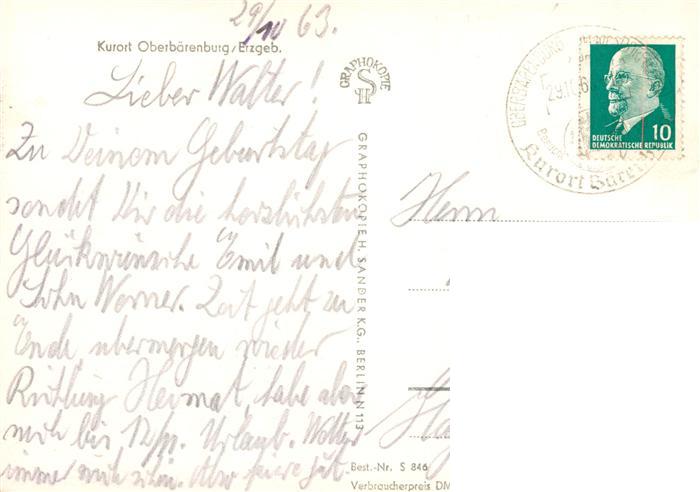 29/10 63.
Kurort Oberbärenburg/Erzgeb.
Lieber Walter!
Zu Deinem Geburtstag
sendet Dir die herzlichsten
Glückwünsche Emil und
Sohn Werner. Zeit geht zu
Ende, übermorgen wieder
Richtung Heimat, habe aber
noch bis 12/11. Urlaub. Wetter
immer noch schön. Also feiere gut.
GRAPHOKOPIE
SH
GRAPHOKOPIE H. SANDER K.G., BERLIN N 113
Herrn
Best.-Nr. S 846
Verbraucherpreis DM
29.10.6
Kurort Bären
10
DEUTSCHE
DEMOKRATISCHE REPUBLIK